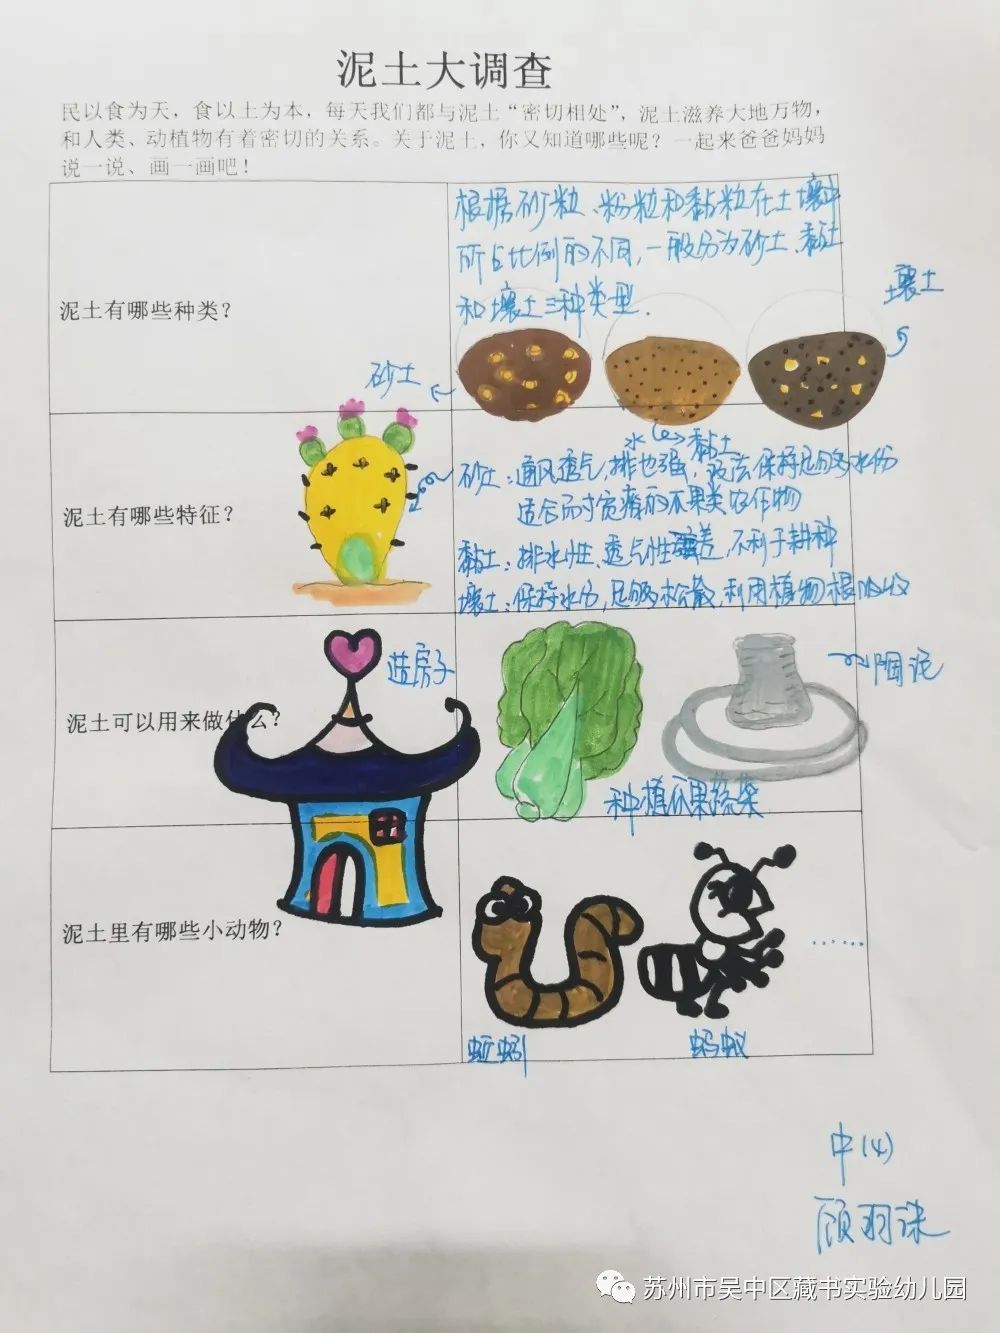 泥土大调查
民以食为天，食以土为本，每天我们都与泥土“密切相处”，泥土滋养大地万物，
和人类、动植物有着密切的关系。关于泥土，你又知道哪些呢？一起来爸爸妈妈
说一说、画一画吧！
泥土有哪些种类？
根据砂粒、粉粒和黏粒在土壤中
所占比例的不同，一般分为砂土、黏土
和壤土三种类型.
砂土
黏土
壤土
泥土有哪些特征？
砂土：通风透气，排水也强，没法保持足够多水份
适合耐贫瘠的瓜果类农作物
黏土：排水性、透气性差，不利于耕种
壤土：保持水份，足够松散，利用植物根吸收
泥土可以用来做什么？
造房子
种植瓜果蔬菜
陶泥
泥土里有哪些小动物？
蚯蚓
蚂蚁
......
中(4)
顾羽
苏州市吴中区藏书实验幼儿园